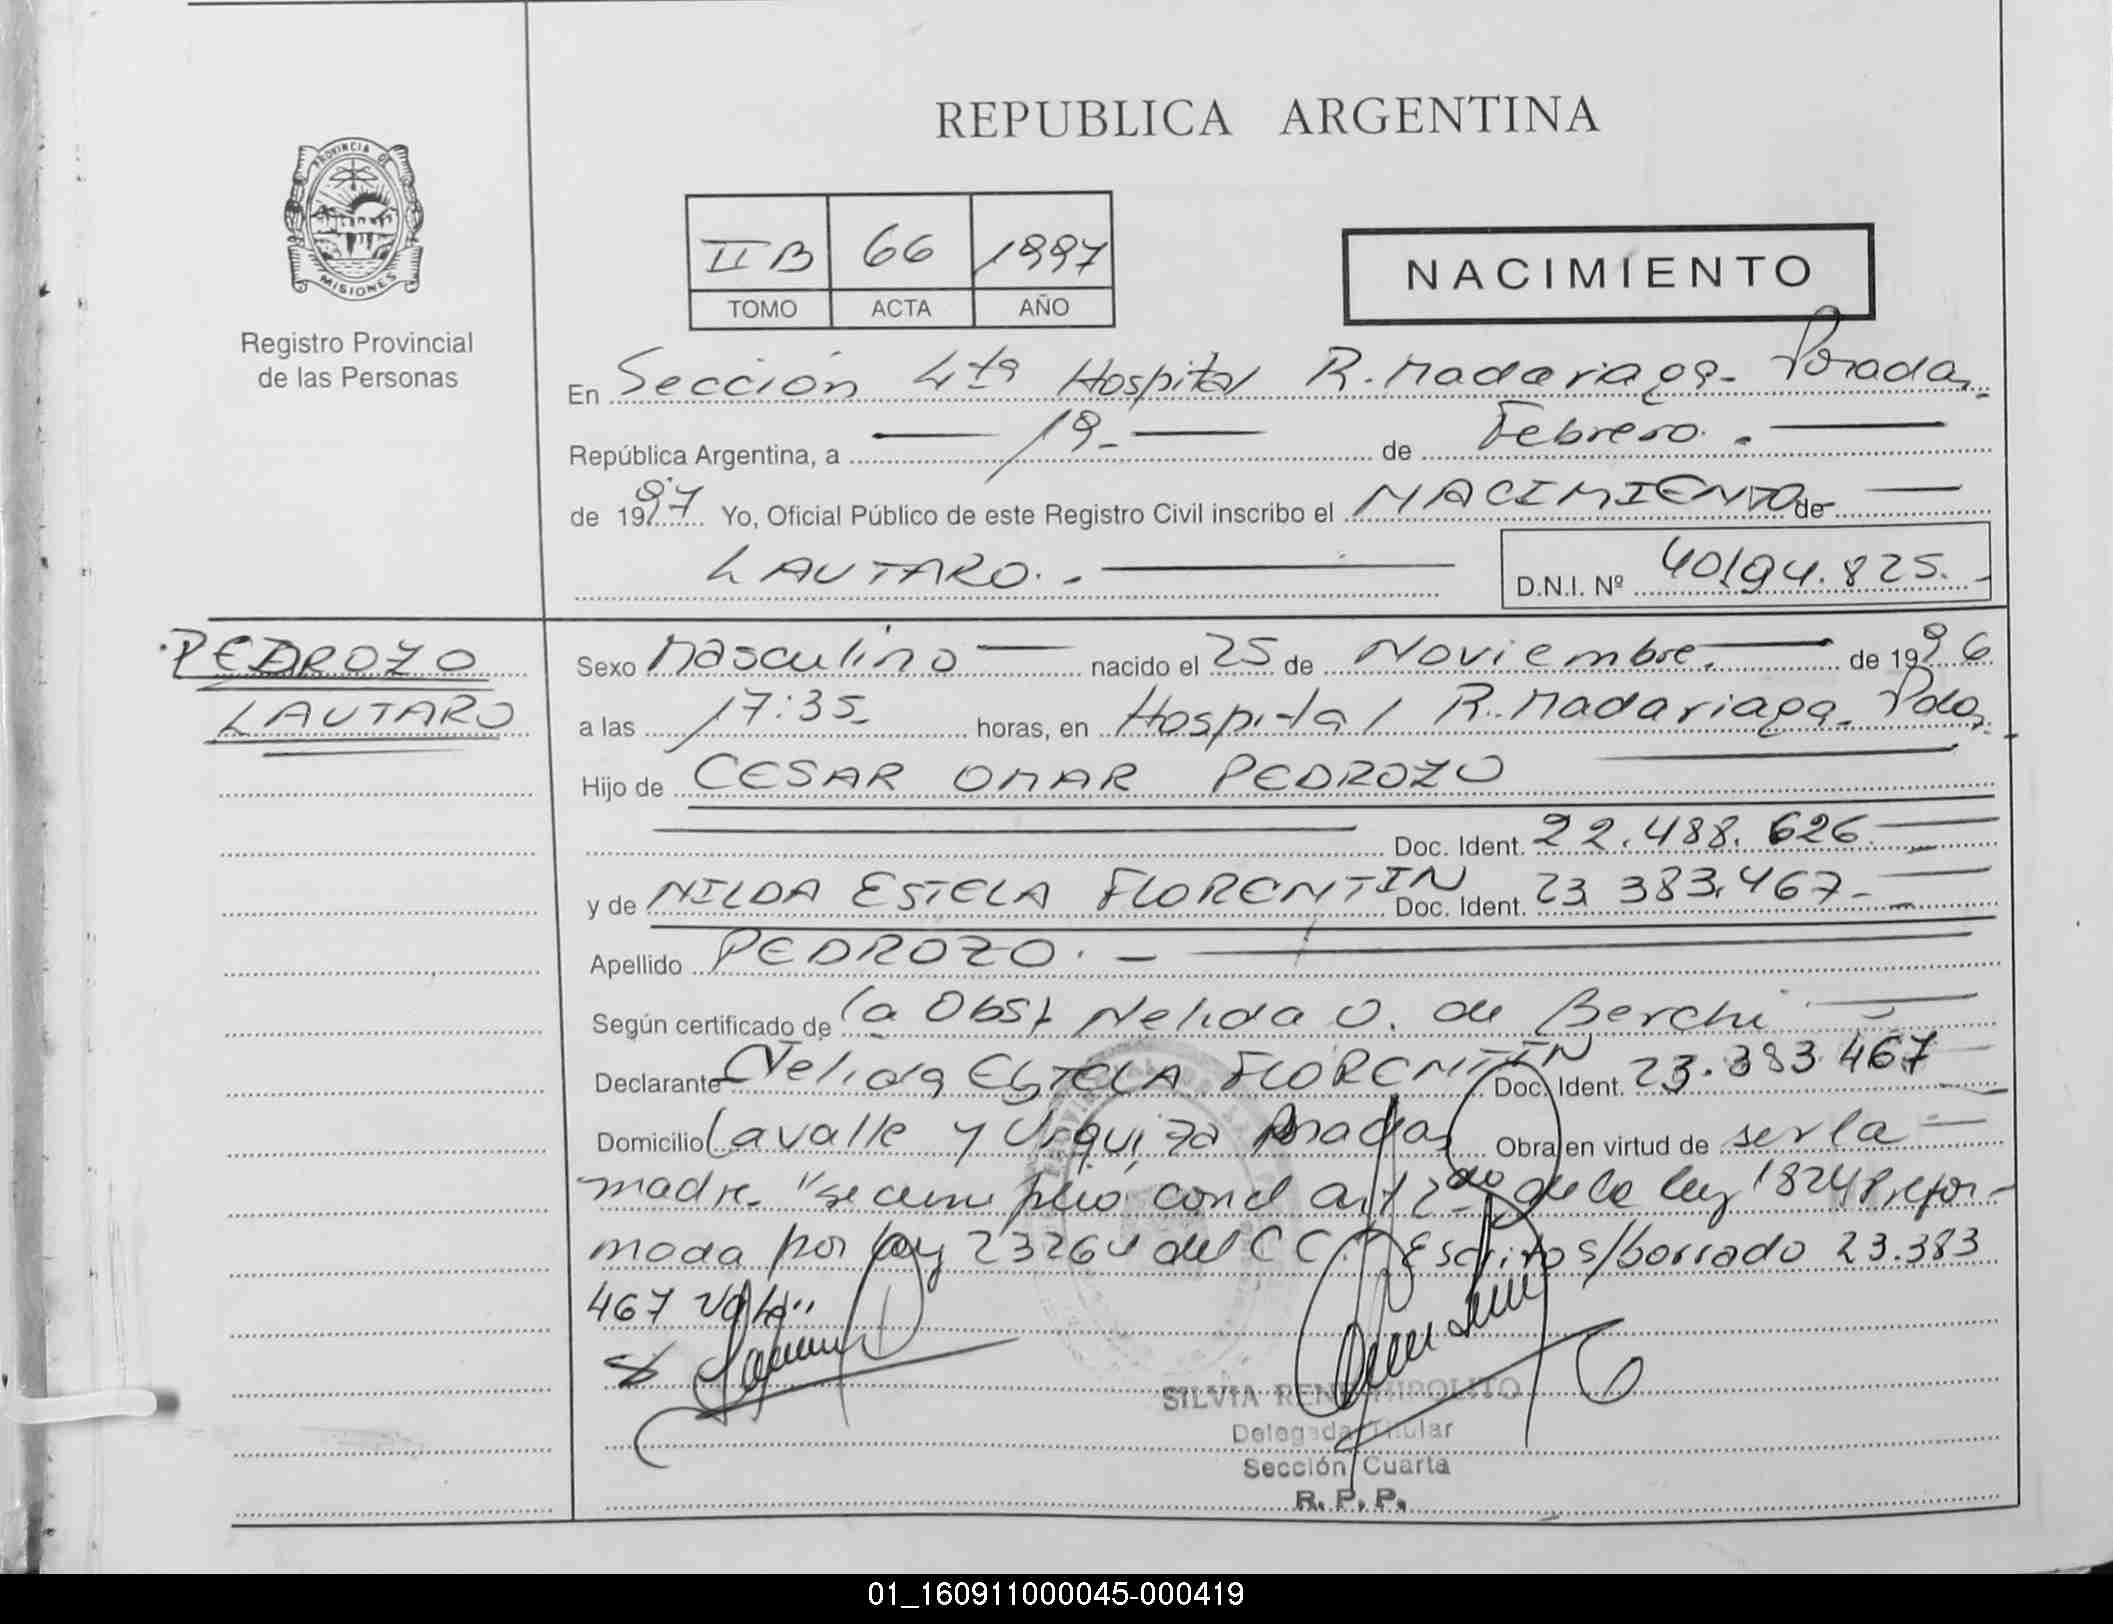 REPUBLICA ARGENTINA
PROVINCIA DE
MISIONES
Registro Provincial
de las Personas
II B 66 1997
TOMO ACTA AÑO
NACIMIENTO
En Sección 4ta Hospital R. Madariaga - Posadas
República Argentina, a 19 - de Febrero. -
de 1997 Yo, Oficial Público de este Registro Civil inscribo el NACIMIENTO de
LAUTARO. -
D.N.I. Nº 40194.825. -
PEDROZO
LAUTARO
Sexo Masculino nacido el 25 de Noviembre. de 1996
a las 17:35 horas, en Hospital R. Madariaga - Pdas
Hijo de CESAR OMAR PEDROZO
Doc. Ident. 22.488.626
y de NILDA ESTELA FLORENTIN Doc. Ident. 23 383.467 -
Apellido PEDROZO. -
Según certificado de la Obst Nelida O. de Berchi
Declarante Nelida ESTELA FLORENTIN Doc. Ident. 23.383 467
Domicilio Lavalle y Urquiza Posadas Obra en virtud de ser la
madre. "se cumplio con el art 2do de la ley 18248 refor-
mada por ley 23264 del CC." Escritos/borrado 23.383
467 Vale"
SILVIA RENE HIPOLITO
Delegada Titular
Sección Cuarta
R. P. P.
01_160911000045-000419